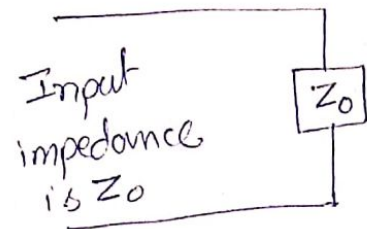 Input
impedance
is Z0
Z0